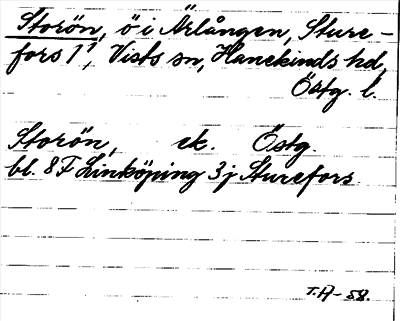 Storön, ö i Ärlången, Sture-
fors 1¹, Vists sn, Hanekinds hd,
Östg. l.
Storön, ek. Östg.
bl. 8 F Linköping 3 j Sturefors
T.A-58.